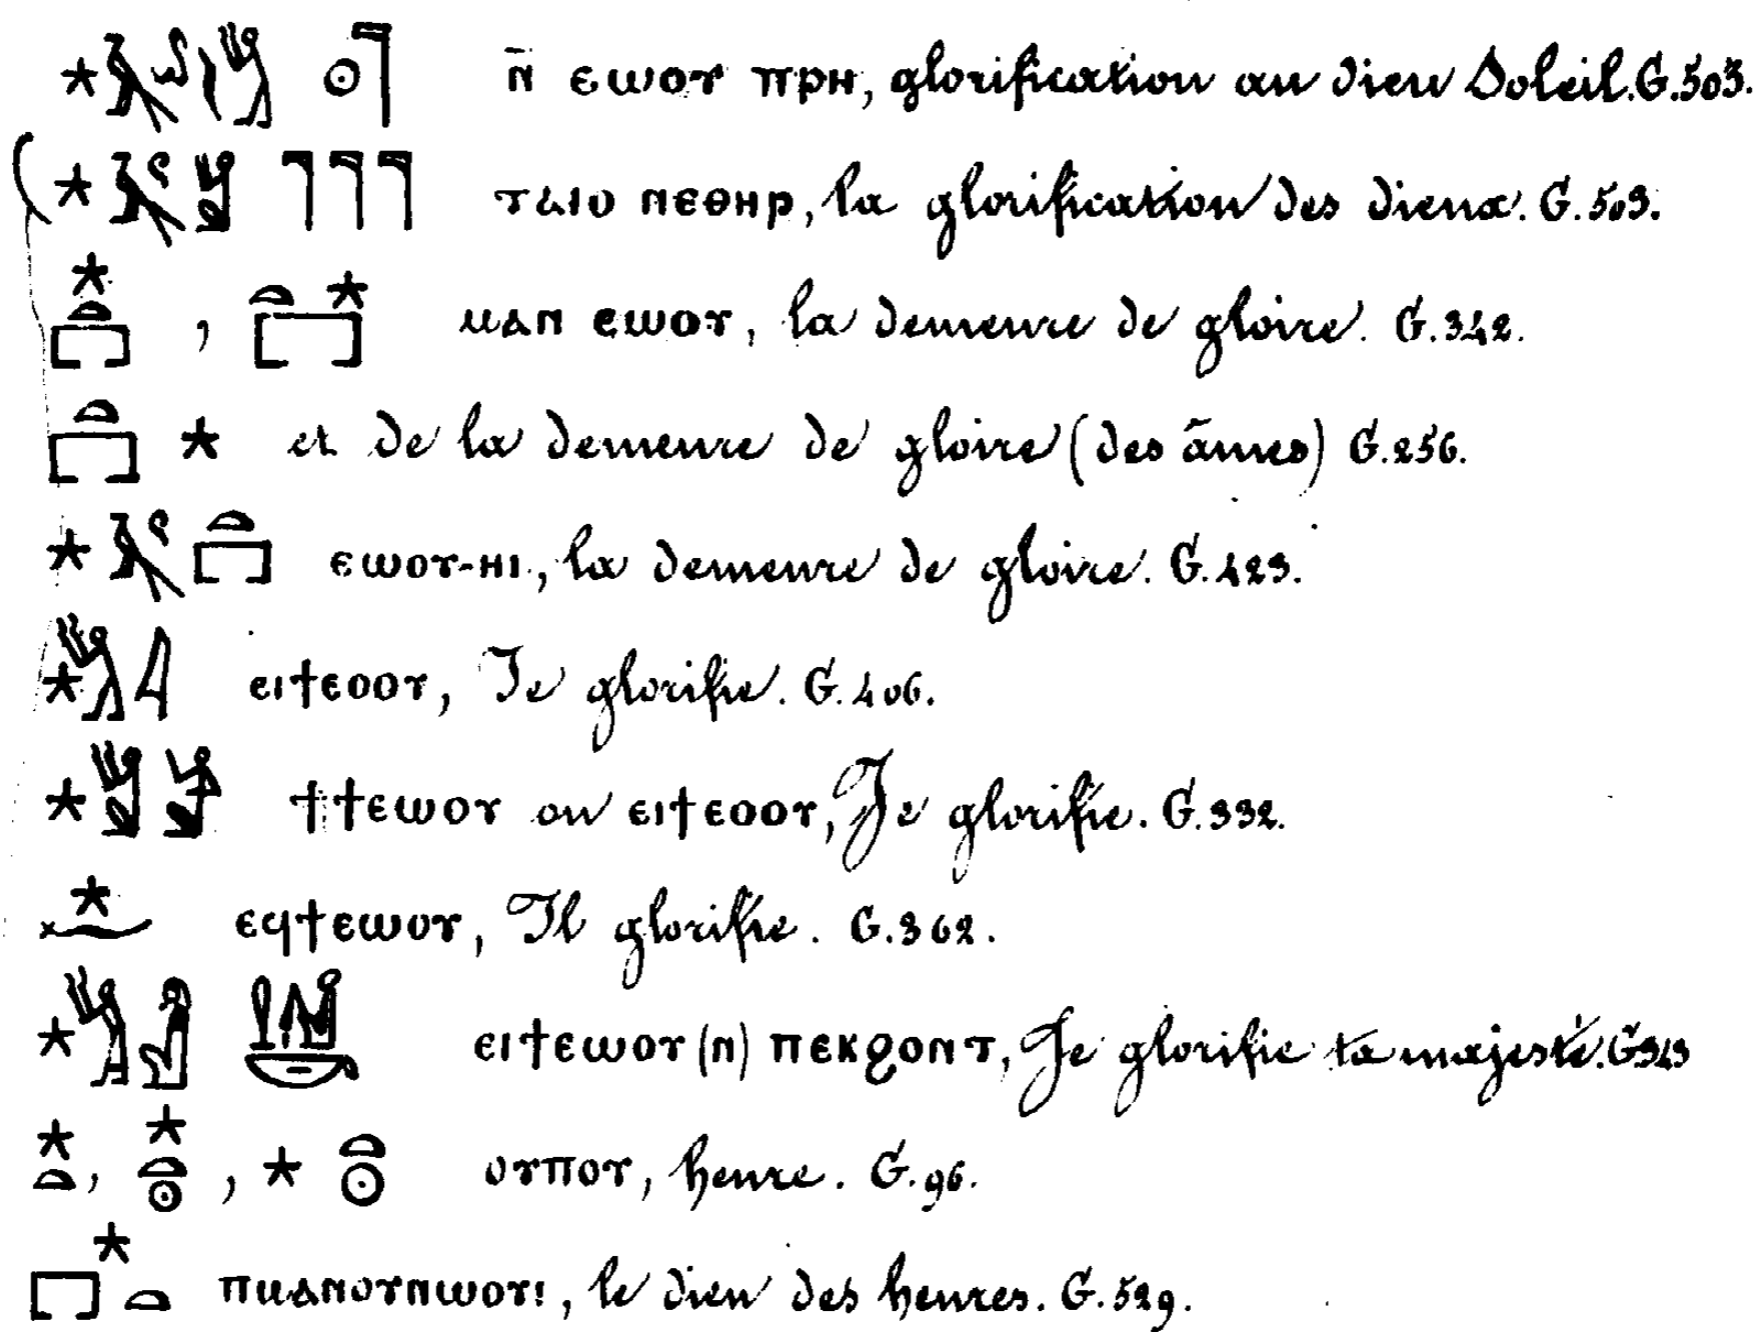 ⲛ̄ ⲉⲱⲟⲩ ⲡⲣⲏ, glorification au dieu Soleil. G. 503.
ⲧⲁⲓⲟ ⲛⲉⲑⲏⲣ, la glorification des dieux. G. 503.
ⲙⲁⲛ ⲉⲱⲟⲩ, la demeure de gloire. G. 342.
et de la demeure de gloire (des âmes) G. 256.
ⲉⲱⲟⲩ-ⲏⲓ, la demeure de gloire. G. 423.
ⲉⲓϯⲉⲟⲟⲩ, Je glorifie. G. 406.
ϯϯⲉⲱⲟⲩ ou ⲉⲓϯⲉⲟⲟⲩ, Je glorifie. G. 332.
ⲉϥϯⲉⲱⲟⲩ, Il glorifie. G. 362.
ⲉⲓϯⲉⲱⲟⲩ (ⲛ) ⲡⲉⲕϩⲟⲛⲧ, Je glorifie ta majesté.
ⲟⲩⲡⲟⲩ, heure. G. 96.
ⲡⲙⲁⲛⲟⲩⲛⲱⲟⲩⲓ, le dieu des heures. G. 529.